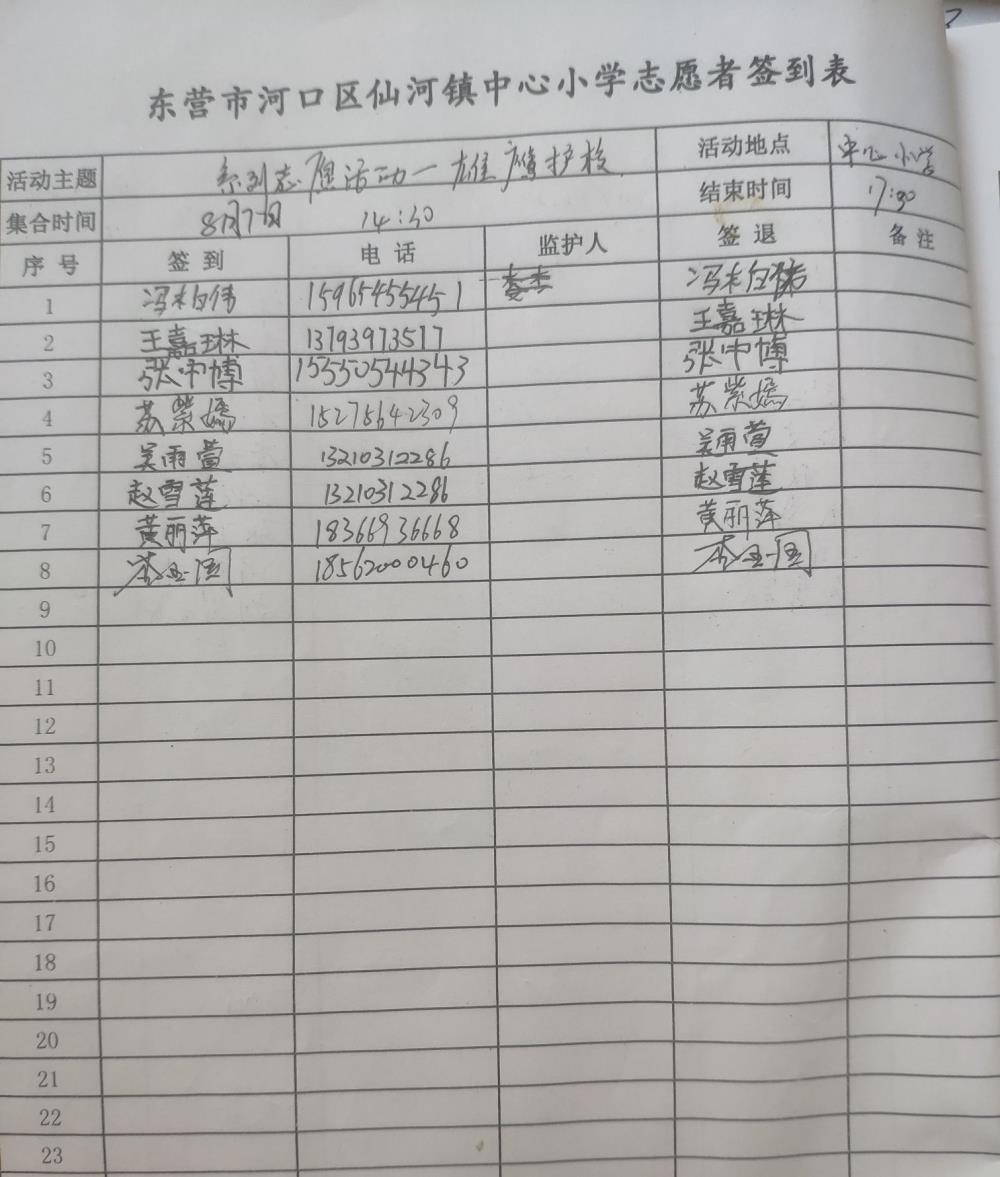 东营市河口区仙河镇中心小学志愿者签到表
活动主题 系列志愿活动一雄鹰护校 活动地点 中心小学
集合时间 8月7日 14:30 结束时间 17:30
序号 签到 电话 监护人 签退 备注
1 冯 伟 15965455451 冯
2 王嘉琳 13793973517 王嘉琳
3 张中博 15550544343 张中博
4 苏紫嫣 15275642309 苏紫嫣
5 吴雨萱 13210312286 吴雨萱
6 赵雪莲 13210312286 赵雪莲
7 黄丽萍 18366936668 黄丽萍
8 18562000460
9
10
11
12
13
14
15
16
17
18
19
20
21
22
23